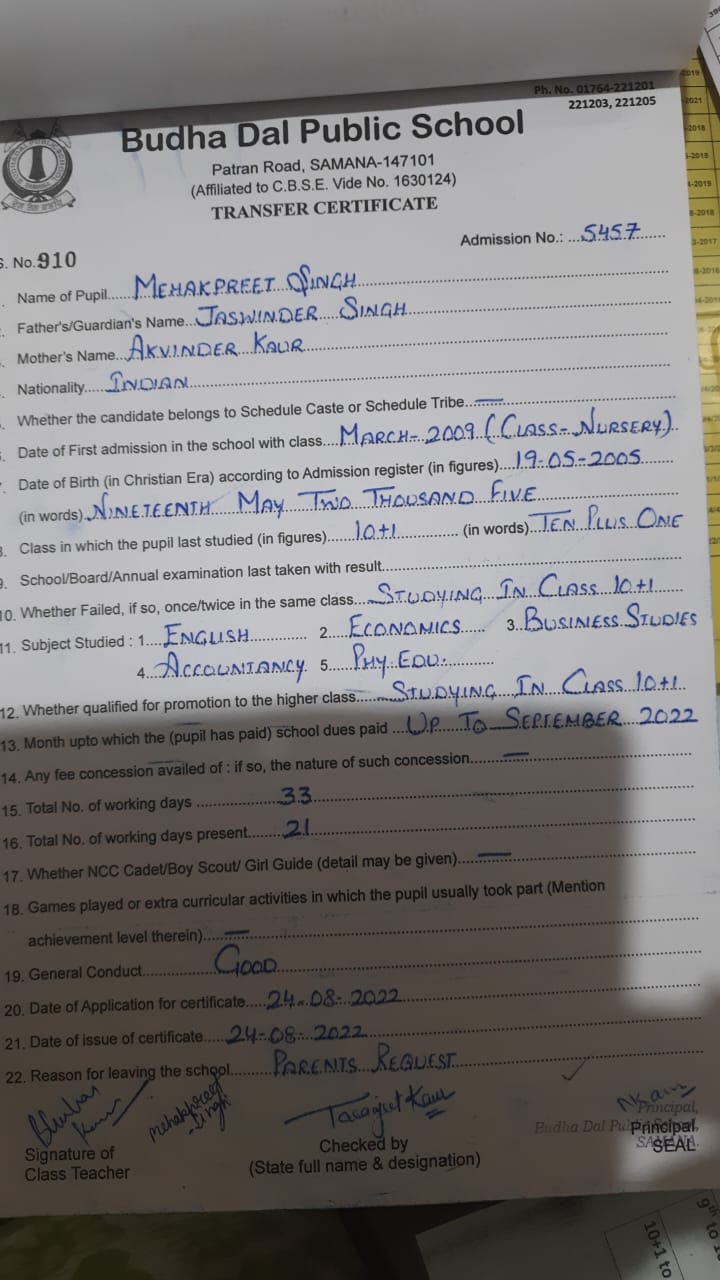 Ph. No. 01764-221201
221203, 221205
Budha Dal Public School
Patran Road, SAMANA-147101
(Affiliated to C.B.S.E. Vide No. 1630124)
TRANSFER CERTIFICATE
Admission No.: ...5457
S. No. 910
Name of Pupil... MEHAKPREET SINGH
Father's/Guardian's Name... JASWINDER SINGH
Mother's Name... AKVINDER KAUR
Nationality... INDIAN
Whether the candidate belongs to Schedule Caste or Schedule Tribe... —
Date of First admission in the school with class... MARCH-2009 (CLASS-NURSERY)
Date of Birth (in Christian Era) according to Admission register (in figures)... 19-05-2005
(in words) NINETEENTH MAY TWO THOUSAND FIVE
8. Class in which the pupil last studied (in figures)... 10+1 (in words) TEN PLUS ONE
9. School/Board/Annual examination last taken with result...
10. Whether Failed, if so, once/twice in the same class... STUDYING IN CLASS 10+1
11. Subject Studied : 1... ENGLISH 2... ECONOMICS 3... BUSINESS STUDIES
4... ACCOUNTANCY 5... PHY. EDU.
12. Whether qualified for promotion to the higher class... STUDYING IN CLASS 10+1
13. Month upto which the (pupil has paid) school dues paid ... UP TO SEPTEMBER 2022
14. Any fee concession availed of : if so, the nature of such concession... —
15. Total No. of working days ... 33
16. Total No. of working days present... 21
17. Whether NCC Cadet/Boy Scout/ Girl Guide (detail may be given)... —
18. Games played or extra curricular activities in which the pupil usually took part (Mention
achievement level therein)... —
19. General Conduct... GOOD
20. Date of Application for certificate... 24-08-2022
21. Date of issue of certificate... 24-08-2022
22. Reason for leaving the school... PARENTS REQUEST
mehakpreet
Singh
Kaur
Principal,
Budha Dal Public School
Principal
SAMANA
SEAL
Signature of
Class Teacher
Checked by
(State full name & designation)
10+1 to
9th to